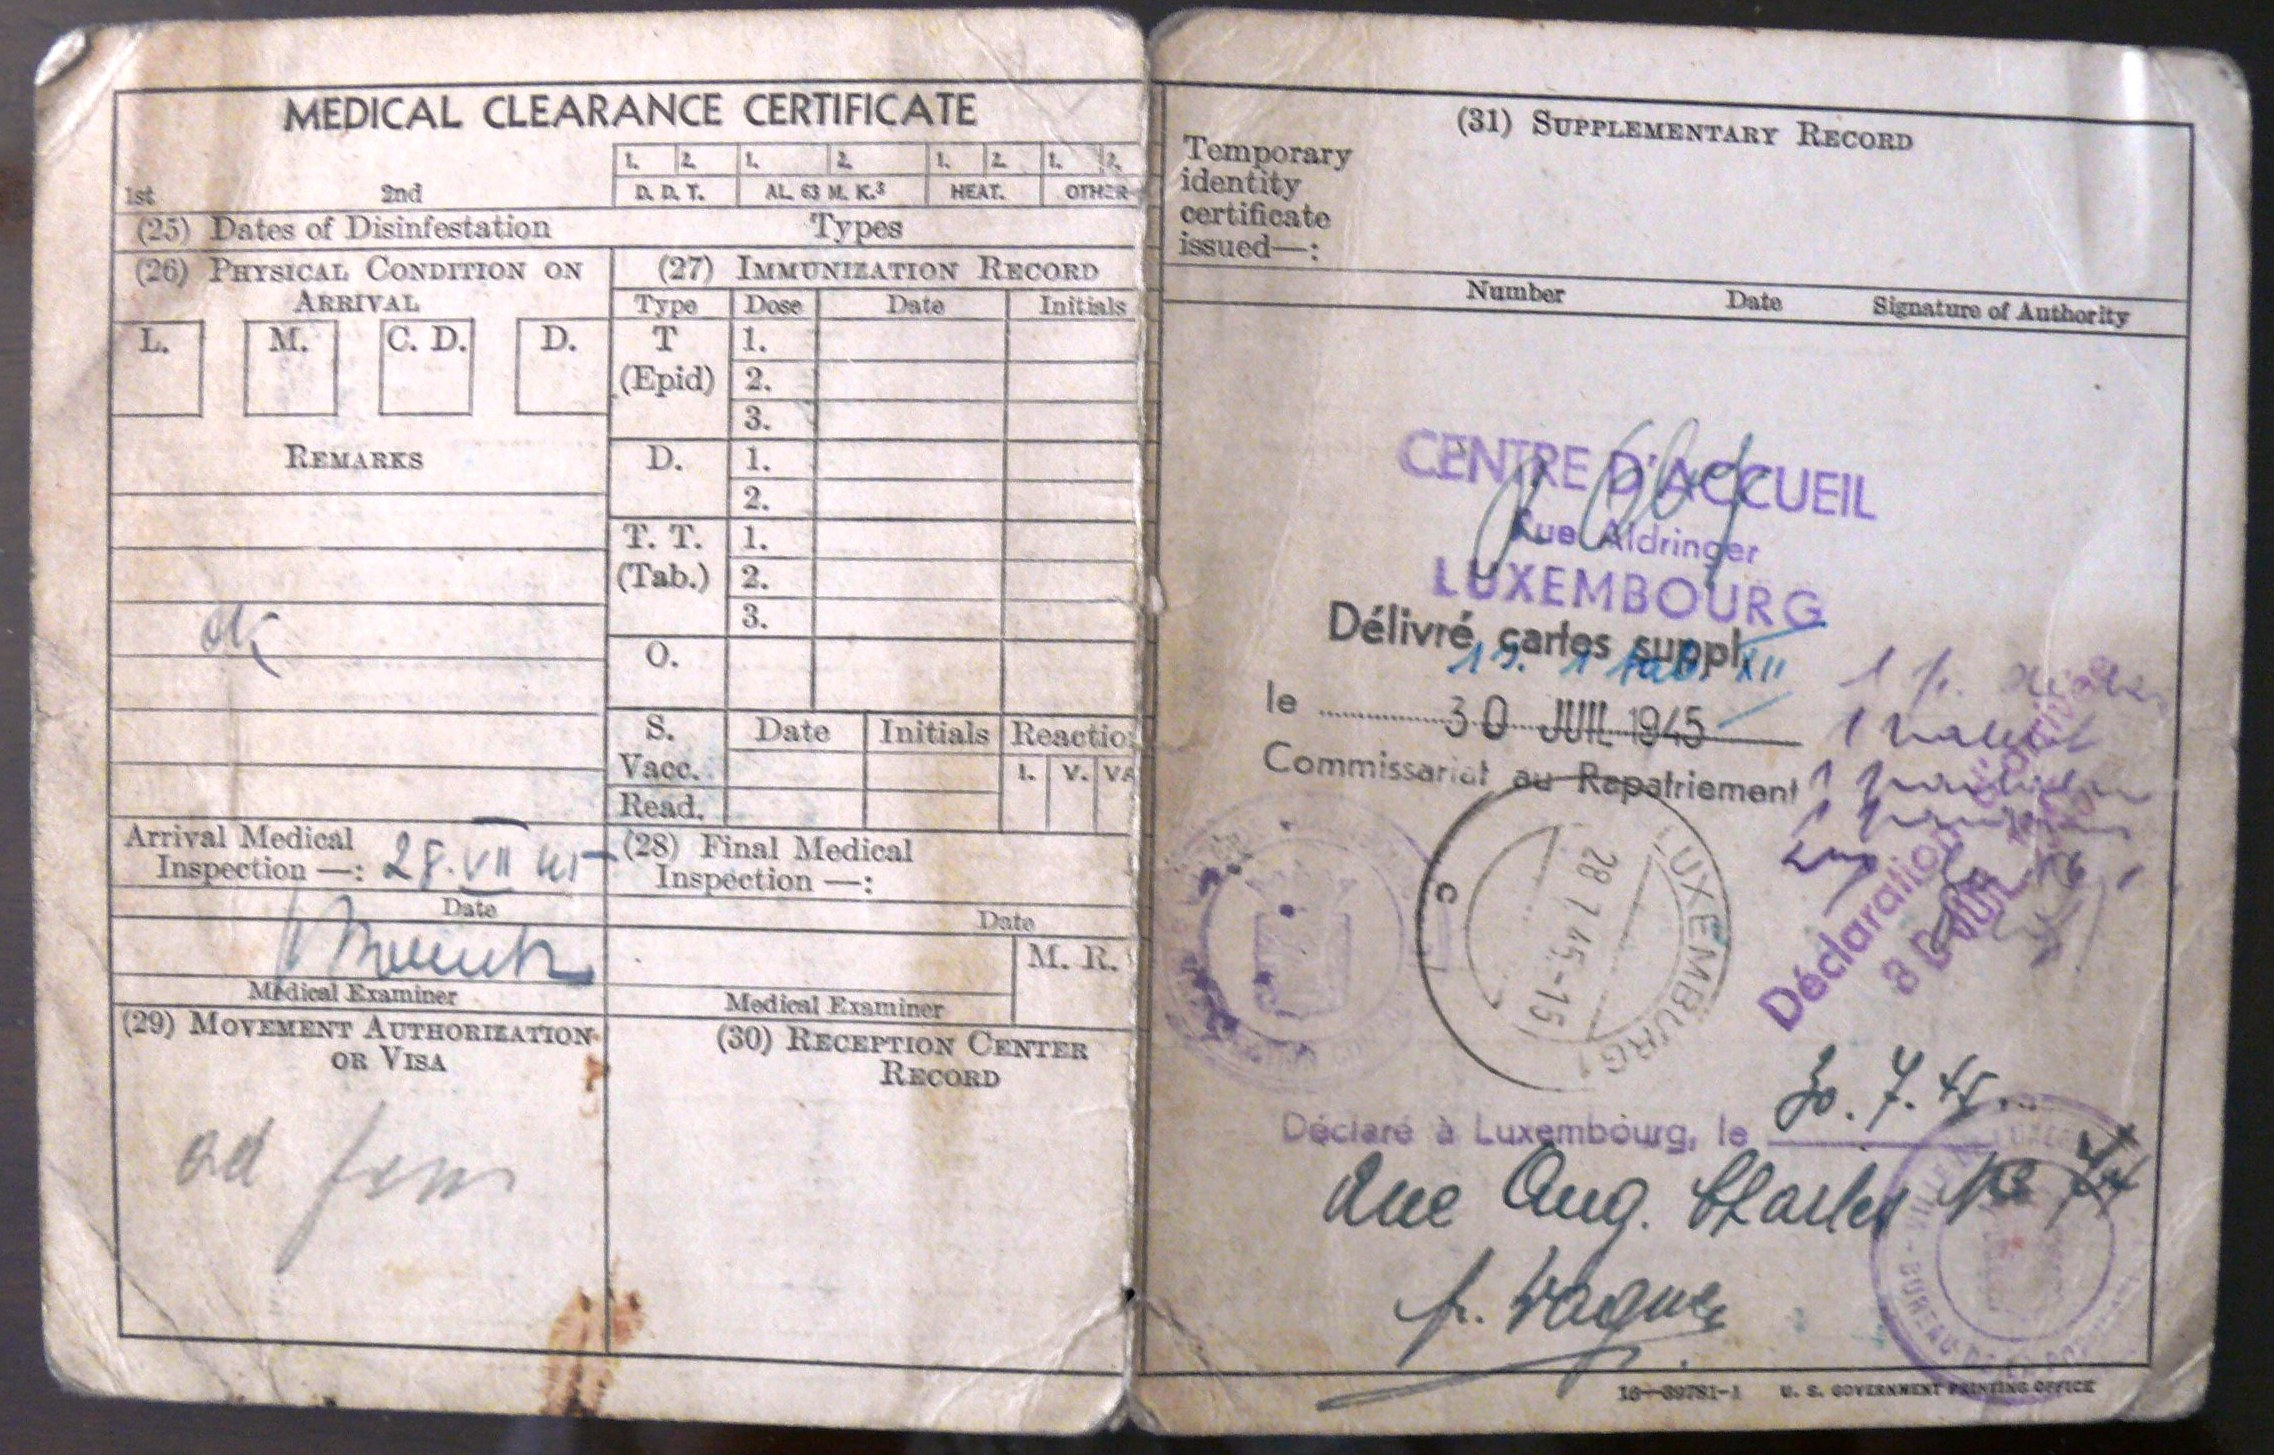 MEDICAL CLEARANCE CERTIFICATE
1. 2. 1. 2. 1. 2. 1. 2.
1st 2nd D. D. T. AL. 63 M. K.3 HEAT. OTHER
(25) Dates of Disinfestation Types
(26) PHYSICAL CONDITION ON ARRIVAL
L. M. C. D. D.
REMARKS
ok
(27) IMMUNIZATION RECORD
Type Dose Date Initials
T (Epid) 1.
2.
3.
D. 1.
2.
T. T. (Tab.) 1.
2.
3.
O.
S. Date Initials Reactio
Vacc. I. V. VA
Read.
Arrival Medical
Inspection —: 28. VII 45
Date
Medical Examiner
(28) Final Medical
Inspection —:
Date
M. R.
Medical Examiner
(29) MOVEMENT AUTHORIZATION
OR VISA
ad
(30) RECEPTION CENTER
RECORD
(31) SUPPLEMENTARY RECORD
Temporary
identity
certificate
issued—:
Number Date Signature of Authority
CENTRE D'ACCUEIL
Rue Aldringer
LUXEMBOURG
Délivré cartes suppl.
XII
le 30 JUIL 1945
Commissariat au Rapatriement
LUXEMBOURG 1
28 7 45-15
Déclaration d'arrivée
JUIL
Déclaré à Luxembourg, le 30. 7. 45.
Rue Aug. Charles No 74
p. Wagner
VILLE DE LUXEMBOURG
BUREAU DE LA POPULATION
16—39781-1 U. S. GOVERNMENT PRINTING OFFICE